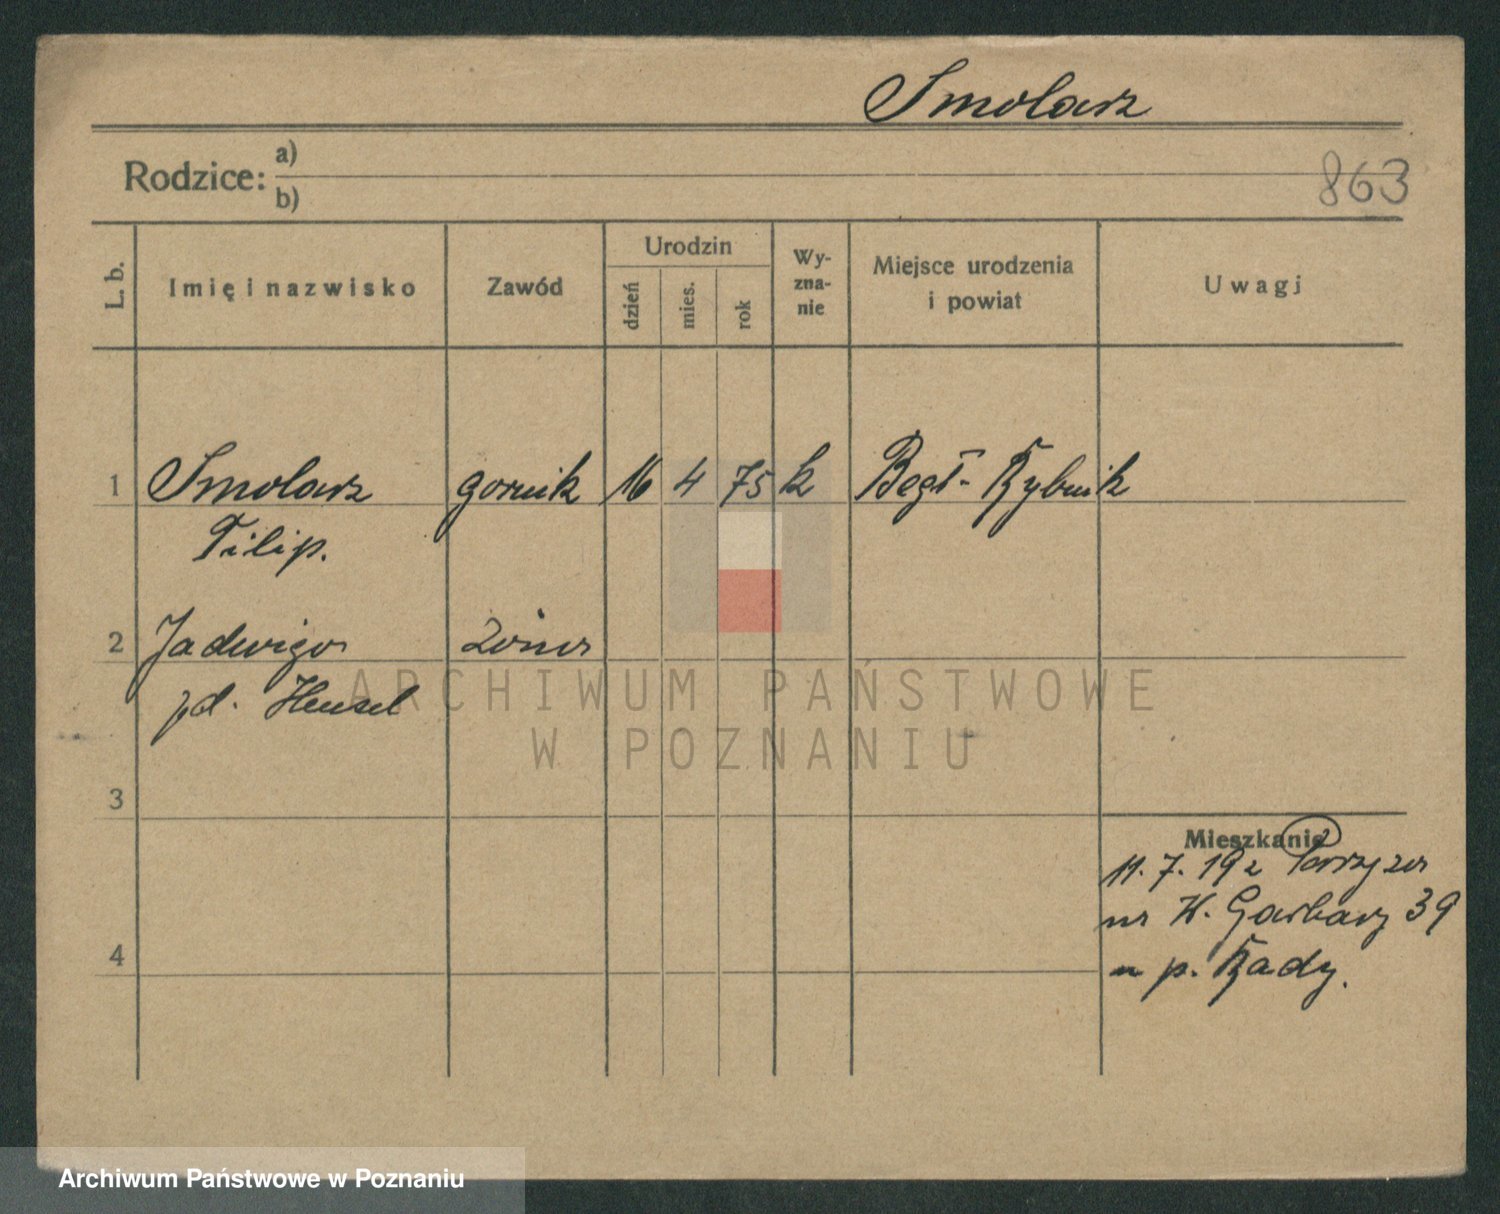 Smolarz
Rodzice: a)
b)
863
L. b.
Imię i nazwisko
Zawód
Urodzin
dzień
mies.
rok
Wy-
zna-
nie
Miejsce urodzenia
i powiat
Uwagi
1 Smolarz gornik 16 4 75 k Rybnik
Filip.
2 Jadwiga żona
Hensel
ARCHIWUM PAŃSTWOWE
W POZNANIU
3
Mieszkanie
11. 7. 19
Garbary 39
4
p. Rady.
Archiwum Państwowe w Poznaniu